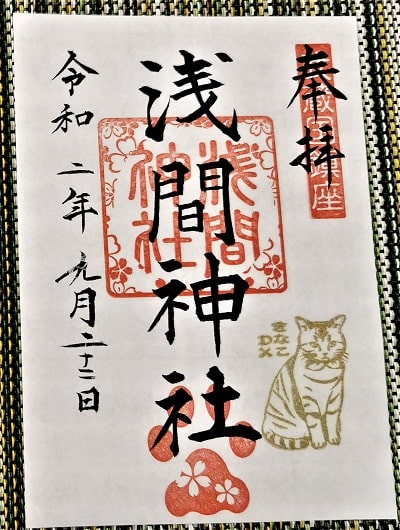 奉拝
鎮座
浅間神社
浅間
神社
令和二年九月二十二日
きなこ
DX